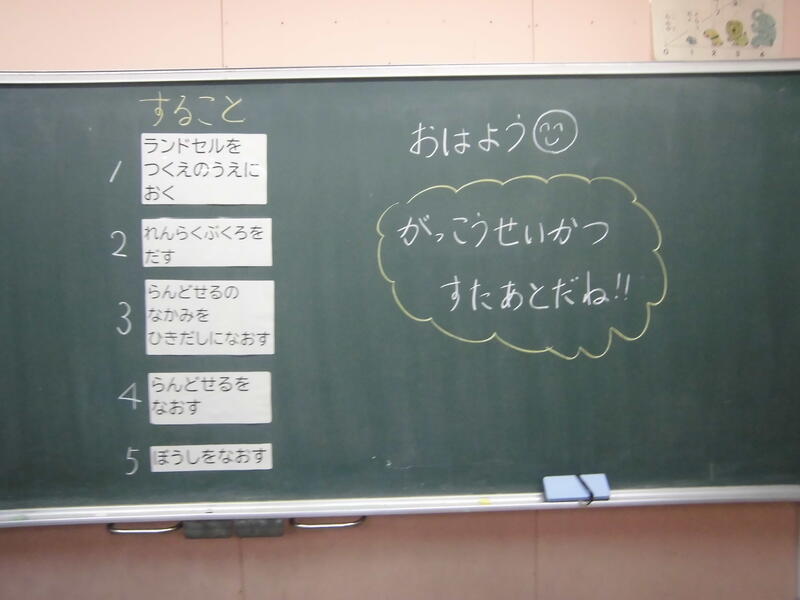 すること
1 ランドセルを
つくえのうえに
おく
2 れんらくぶくろを
だす
3 らんどせるの
なかみを
ひきだしになおす
4 らんどせるを
なおす
5 ぼうしをなおす
おはよう
がっこうせいかつ
すたあとだね!!
0 1 2 3 4